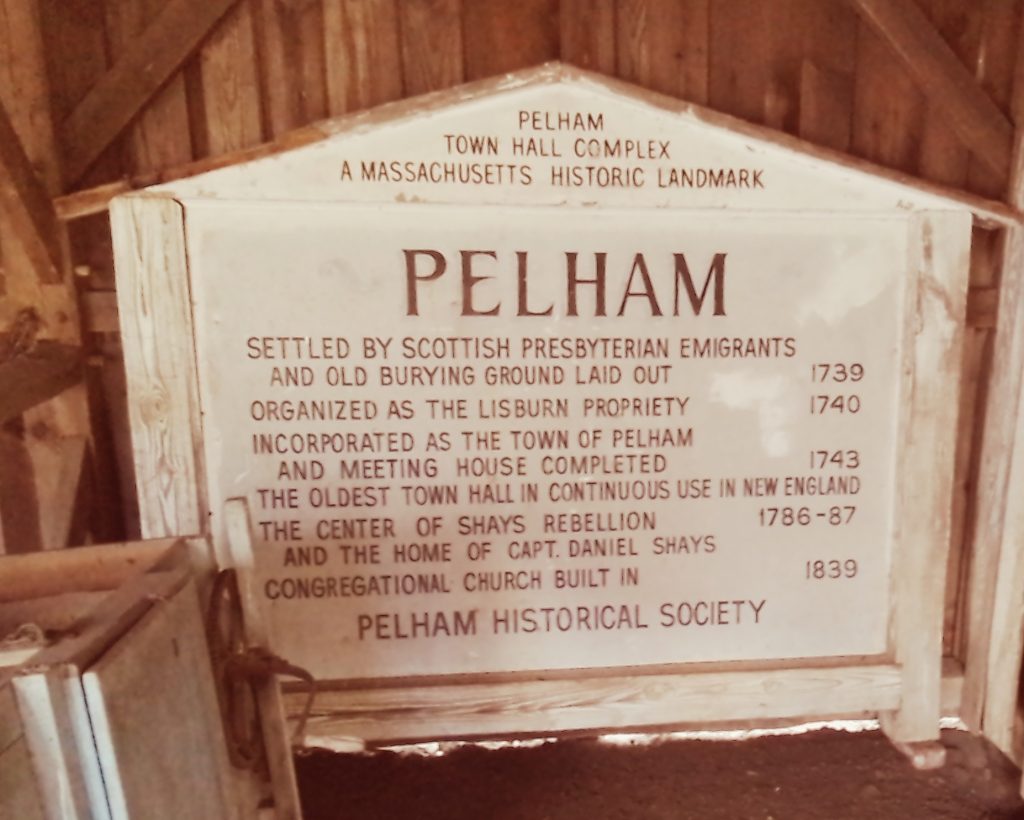 PELHAM
TOWN HALL COMPLEX
A MASSACHUSETTS HISTORIC LANDMARK
PELHAM
SETTLED BY SCOTTISH PRESBYTERIAN EMIGRANTS
AND OLD BURYING GROUND LAID OUT 1739
ORGANIZED AS THE LISBURN PROPRIETY 1740
INCORPORATED AS THE TOWN OF PELHAM
AND MEETING HOUSE COMPLETED 1743
THE OLDEST TOWN HALL IN CONTINUOUS USE IN NEW ENGLAND
THE CENTER OF SHAYS REBELLION 1786-87
AND THE HOME OF CAPT. DANIEL SHAYS
CONGREGATIONAL CHURCH BUILT IN 1839
PELHAM HISTORICAL SOCIETY